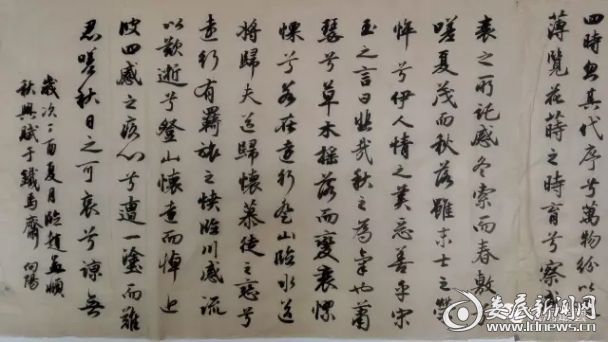 四時忽其代序兮萬物紛以
薄覽花蒔之時育兮察盛
衰之所託感冬索而春敷
嗟夏茂而秋落雖末士之榮
悴兮伊人情之美惡善乎宋
玉之言曰悲哉秋之為氣也蕭
瑟兮草木搖落而變衰憭
慄兮若在遠行登山臨水送
將歸夫送歸懷慕徒之戀兮
遠行有羈旅之憤臨川感流
以歎逝兮登山懷遠而悼近
彼四感之疚心兮遭一塗而難
忍嗟秋日之可哀兮諒無
歲次丁酉夏月臨趙孟頫
秋興賦于鐵馬齋 向陽
娄底新闻网
www.ldnews.cn